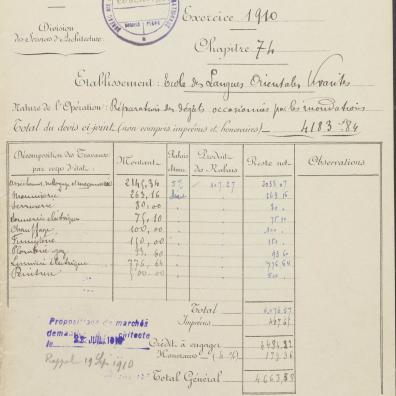 Exercice 1910
Division
des Services d'Architecture.
Chapitre 74
Etablissement : Ecole des Langues Orientales Vivantes
Nature de l'Opération : Réparation des dégâts occasionnés par les inondations
Total du devis ci-joint (non compris imprévus et honoraires) 4183.84
Décomposition des Travaux par corps d'état. Montant Rabais Produit du Rabais Reste net Observations
2145,34 5% 107.27 2038.07
Menuiserie 263,16 263.16
Serrurerie 80,00 80
Sonnerie électrique 75,10 75.10
Chauffage 100,00 100
Fumisterie 150,00 150
Plomberie gaz 93.60
Lumière électrique 776,64 776.64
Peinture 500.00 500
Total 4,076,57
Imprévus
Propositions de marchés
demandées architecte
le 22 JUIL 1910
Rappel 19 Sep 1910
Crédit à engager 4484,22
Honoraires (4%) 179,36
Total Général 4663,58